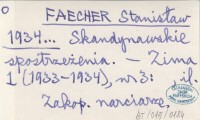 FAECHER Stanisław
1934... Skandynawskie
spostrzeżenia. – Zima
1 (1933–1934), nr 3: il.
Zakop. narciarze.
AT/019/0184